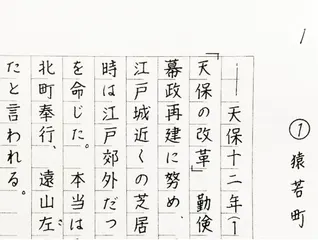 1
① 猿若町
――天保十二年(一
「天保の改革」勤倹
幕政再建に努め、
江戸城近くの芝居
時は江戸郊外だっ
を命じた。本当は
北町奉行、遠山左
ざ
たと言われる。